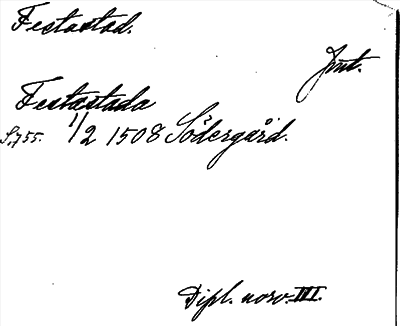 Festastad.
Jmt.
Festastada
S,755. 1/2 1508 Södergård.
Dipl. norv. III.